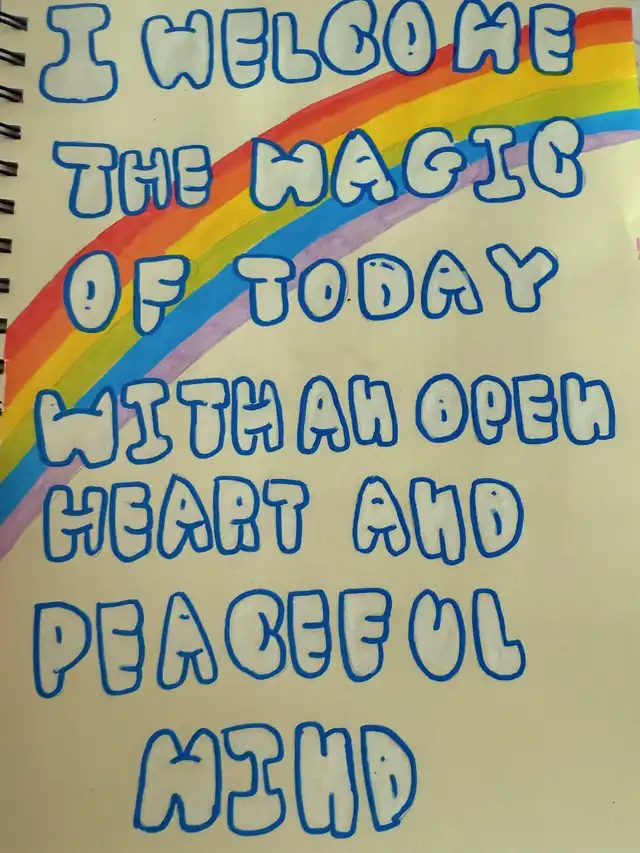 I WELCOME
THE MAGIC
OF TODAY
WITH AN OPEN
HEART AND
PEACEFUL
MIND